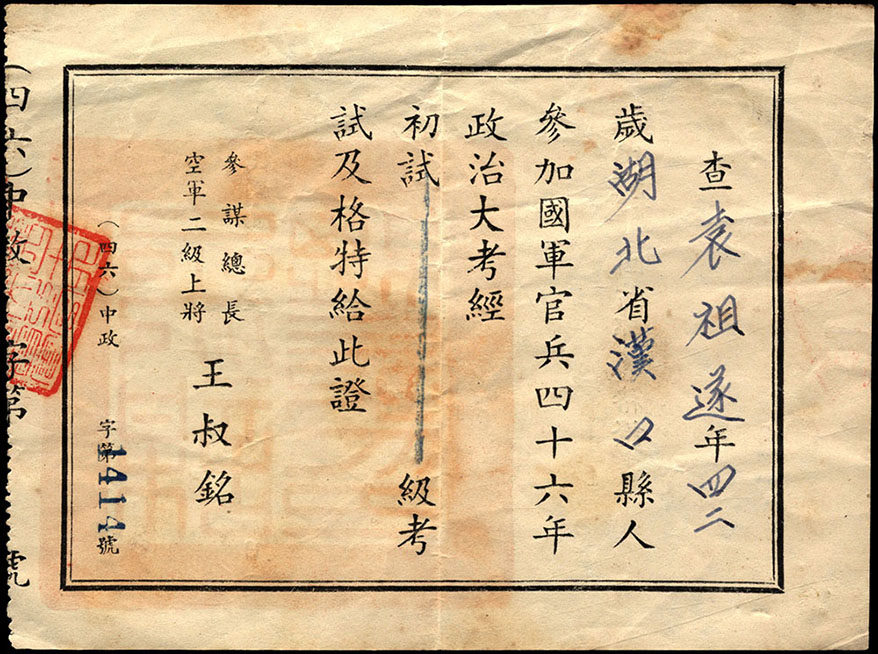 查袁祖遂年四二
歲湖北省漢口縣人
參加國軍官兵四十六年
政治大考經
初試級考
試及格特給此證
參謀總長
空軍二級上將
王叔銘
(四六)中政字第1414號
(四六)中政字第號